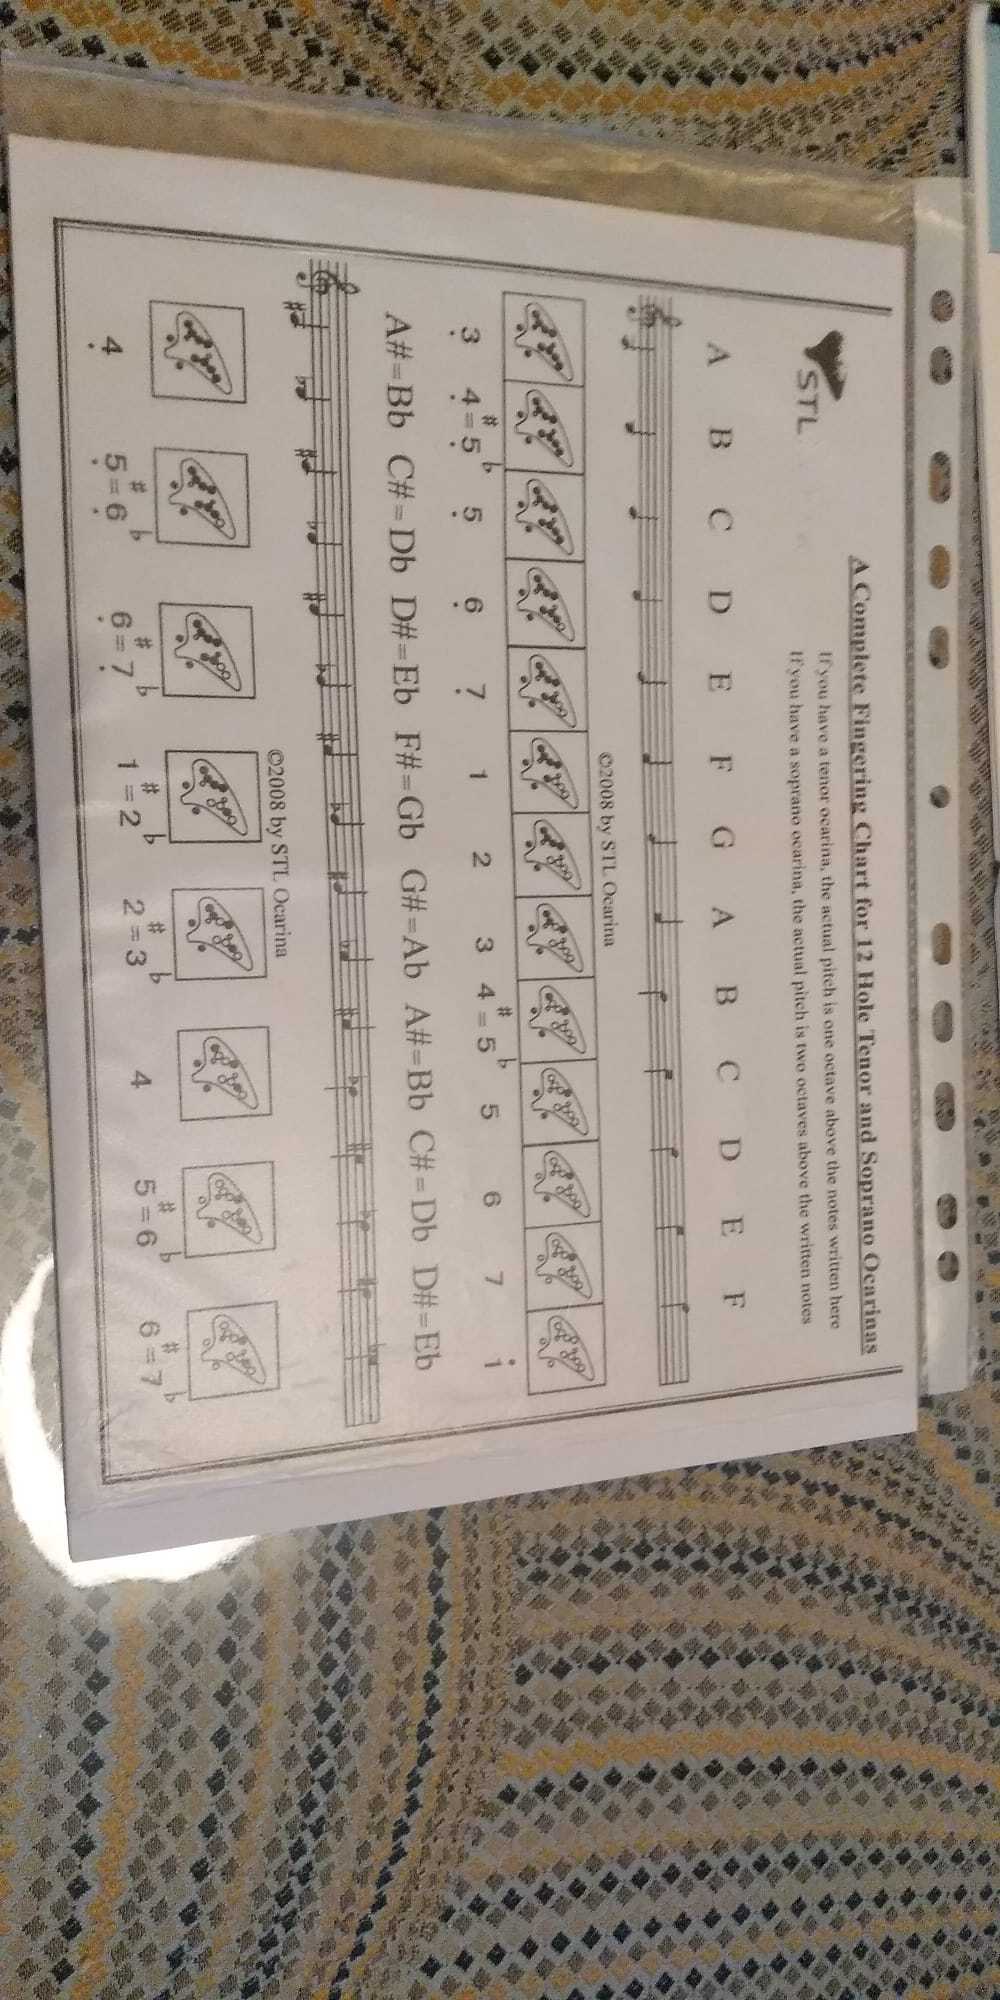 A Complete Fingering Chart for 12 Hole Tenor and Soprano Ocarinas
If you have a tenor ocarina, the actual pitch is one octave above the notes written here
If you have a soprano ocarina, the actual pitch is two octaves above the written notes
STL
A B C D E F G A B C D E F
©2008 by STL Ocarina
3̣ 4̣♯=5̣♭ 5̣ 6̣ 7̣ 1 2 3 4♯=5♭ 5 6 7 1̇
A#=Bb C#=Db D#=Eb F#=Gb G#=Ab A#=Bb C#=Db D#=Eb
©2008 by STL Ocarina
4̣ 5̣♯=6̣♭ 6̣♯=7̣♭ 1♯=2♭ 2♯=3♭ 4 5♯=6♭ 6♯=7♭